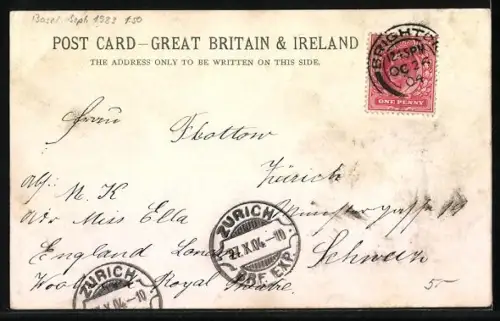 Basel Sept 1982 1.50
POST CARD – GREAT BRITAIN & IRELAND
THE ADDRESS ONLY TO BE WRITTEN ON THIS SIDE.
BRIGHTON
PM
OC 26
04
ONE PENNY
Frau
Zürich
M. K
Miss Ella
Münstergasse
England London
Schweiz
Royal
ZÜRICH
27.X.04.–10
BRF. EXP.
ZÜRICH
X.04.–10
5.-